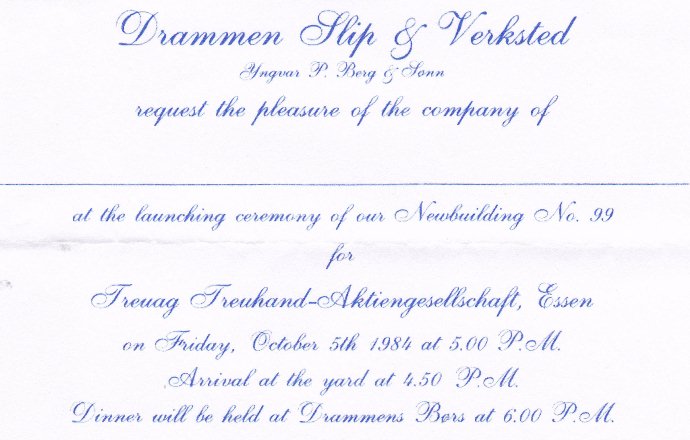 Drammen Slip & Verksted
Yngvar P. Berg & Sønn
request the pleasure of the company of
at the launching ceremony of our Newbuilding No. 99
for
Treuag Treuhand-Aktiengesellschaft, Essen
on Friday, October 5th 1984 at 5.00 P.M.
Arrival at the yard at 4.50 P.M.
Dinner will be held at Drammens Børs at 6.00 P.M.